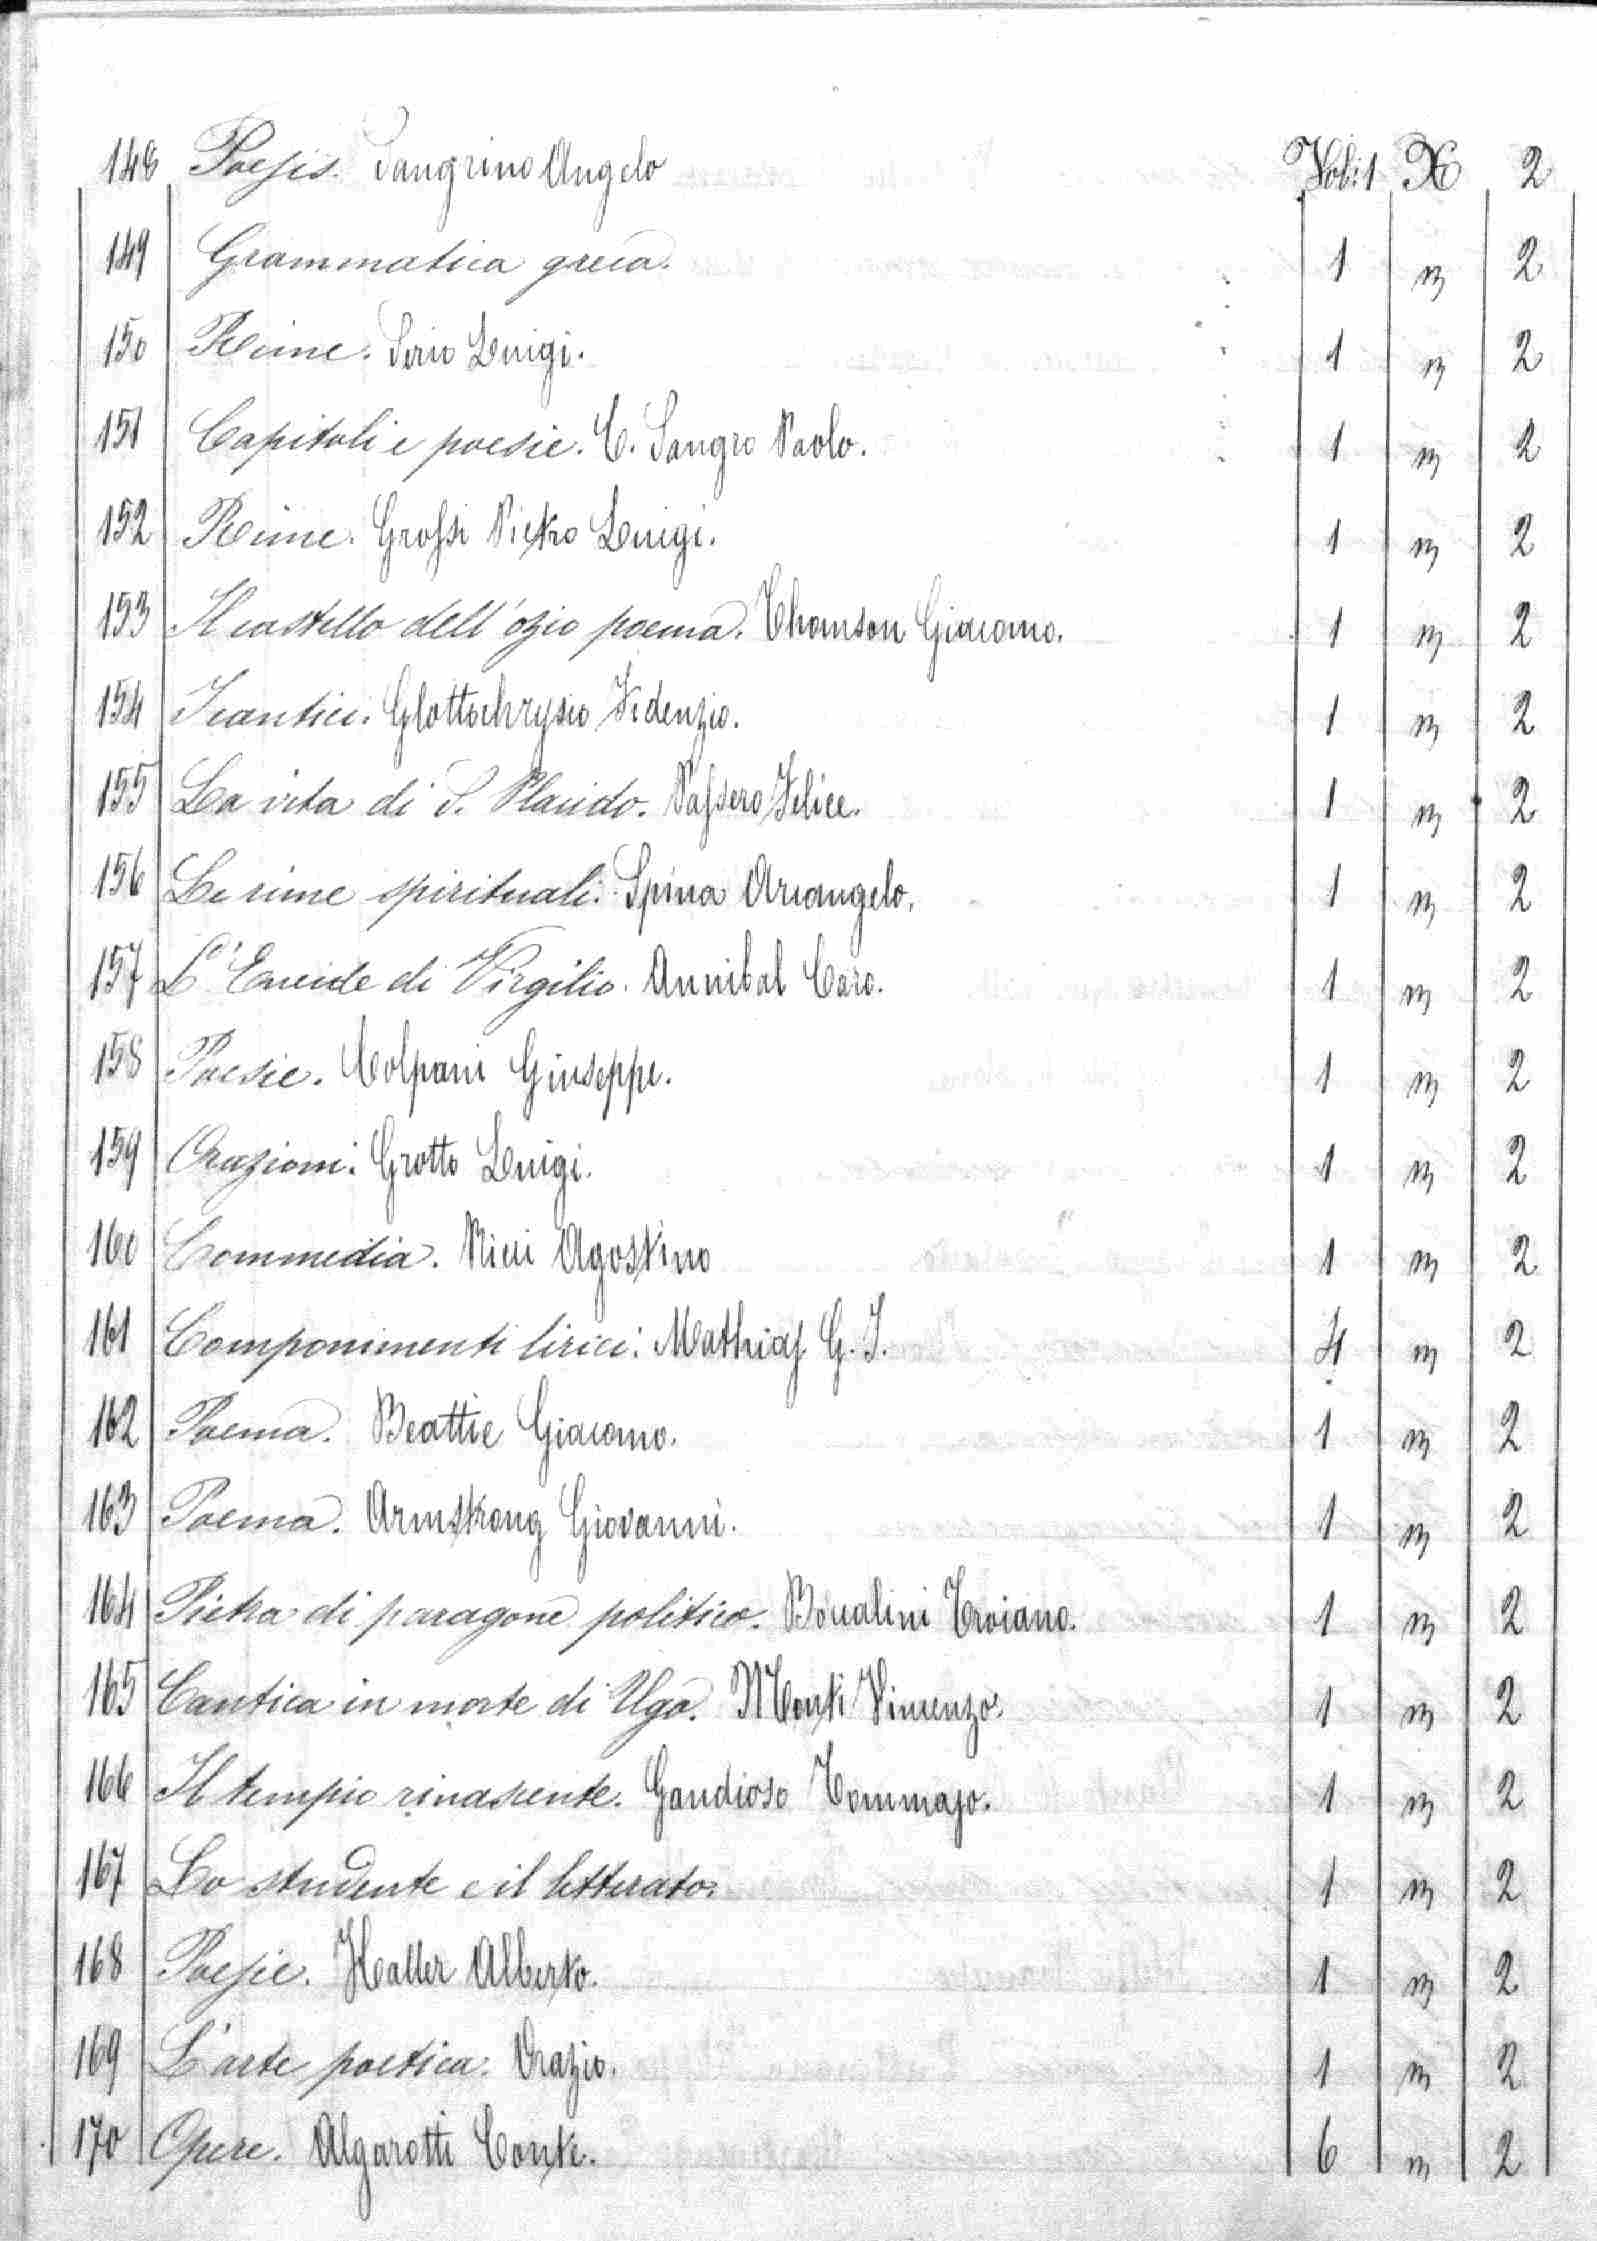 148 Poesis. Sangrino Angelo Vol: 1 X 2
149 Grammatica greca. 1 m 2
150 Rime. Serio Luigi. 1 m 2
151 Capitoli e poesie. C. Sangro Paolo. 1 m 2
152 Rime. Grossi Pietro Luigi. 1 m 2
153 Il castello dell'ozio poema. Thomson Giacomo. 1 m 2
154 I cantici. Glottochrysio Fidenzio. 1 m 2
155 La vita di S. Placido. Passero Felice. 1 m 2
156 Le rime spirituali. Spina Arcangelo. 1 m 2
157 L'Eneide di Virgilio. Annibal Caro. 1 m 2
158 Poesie. Colpani Giuseppe. 1 m 2
159 Orazioni. Grotto Luigi. 1 m 2
160 Commedia. Ricci Agostino 1 m 2
161 Componimenti lirici. Mathias G. I. 4 m 2
162 Poema. Beattie Giacomo. 1 m 2
163 Poema. Armstrong Giovanni. 1 m 2
164 Pietra di paragone politico. Boccalini Troiano. 1 m 2
165 Cantica in morte di Ugo. Monti Vincenzo. 1 m 2
166 Il tempio rinascente. Gaudioso Tommaso. 1 m 2
167 Lo studente e il letterato. 1 m 2
168 Poesie. Haller Alberto. 1 m 2
169 L'arte poetica. Orazio. 1 m 2
170 Opere. Algarotti Conte. 6 m 2